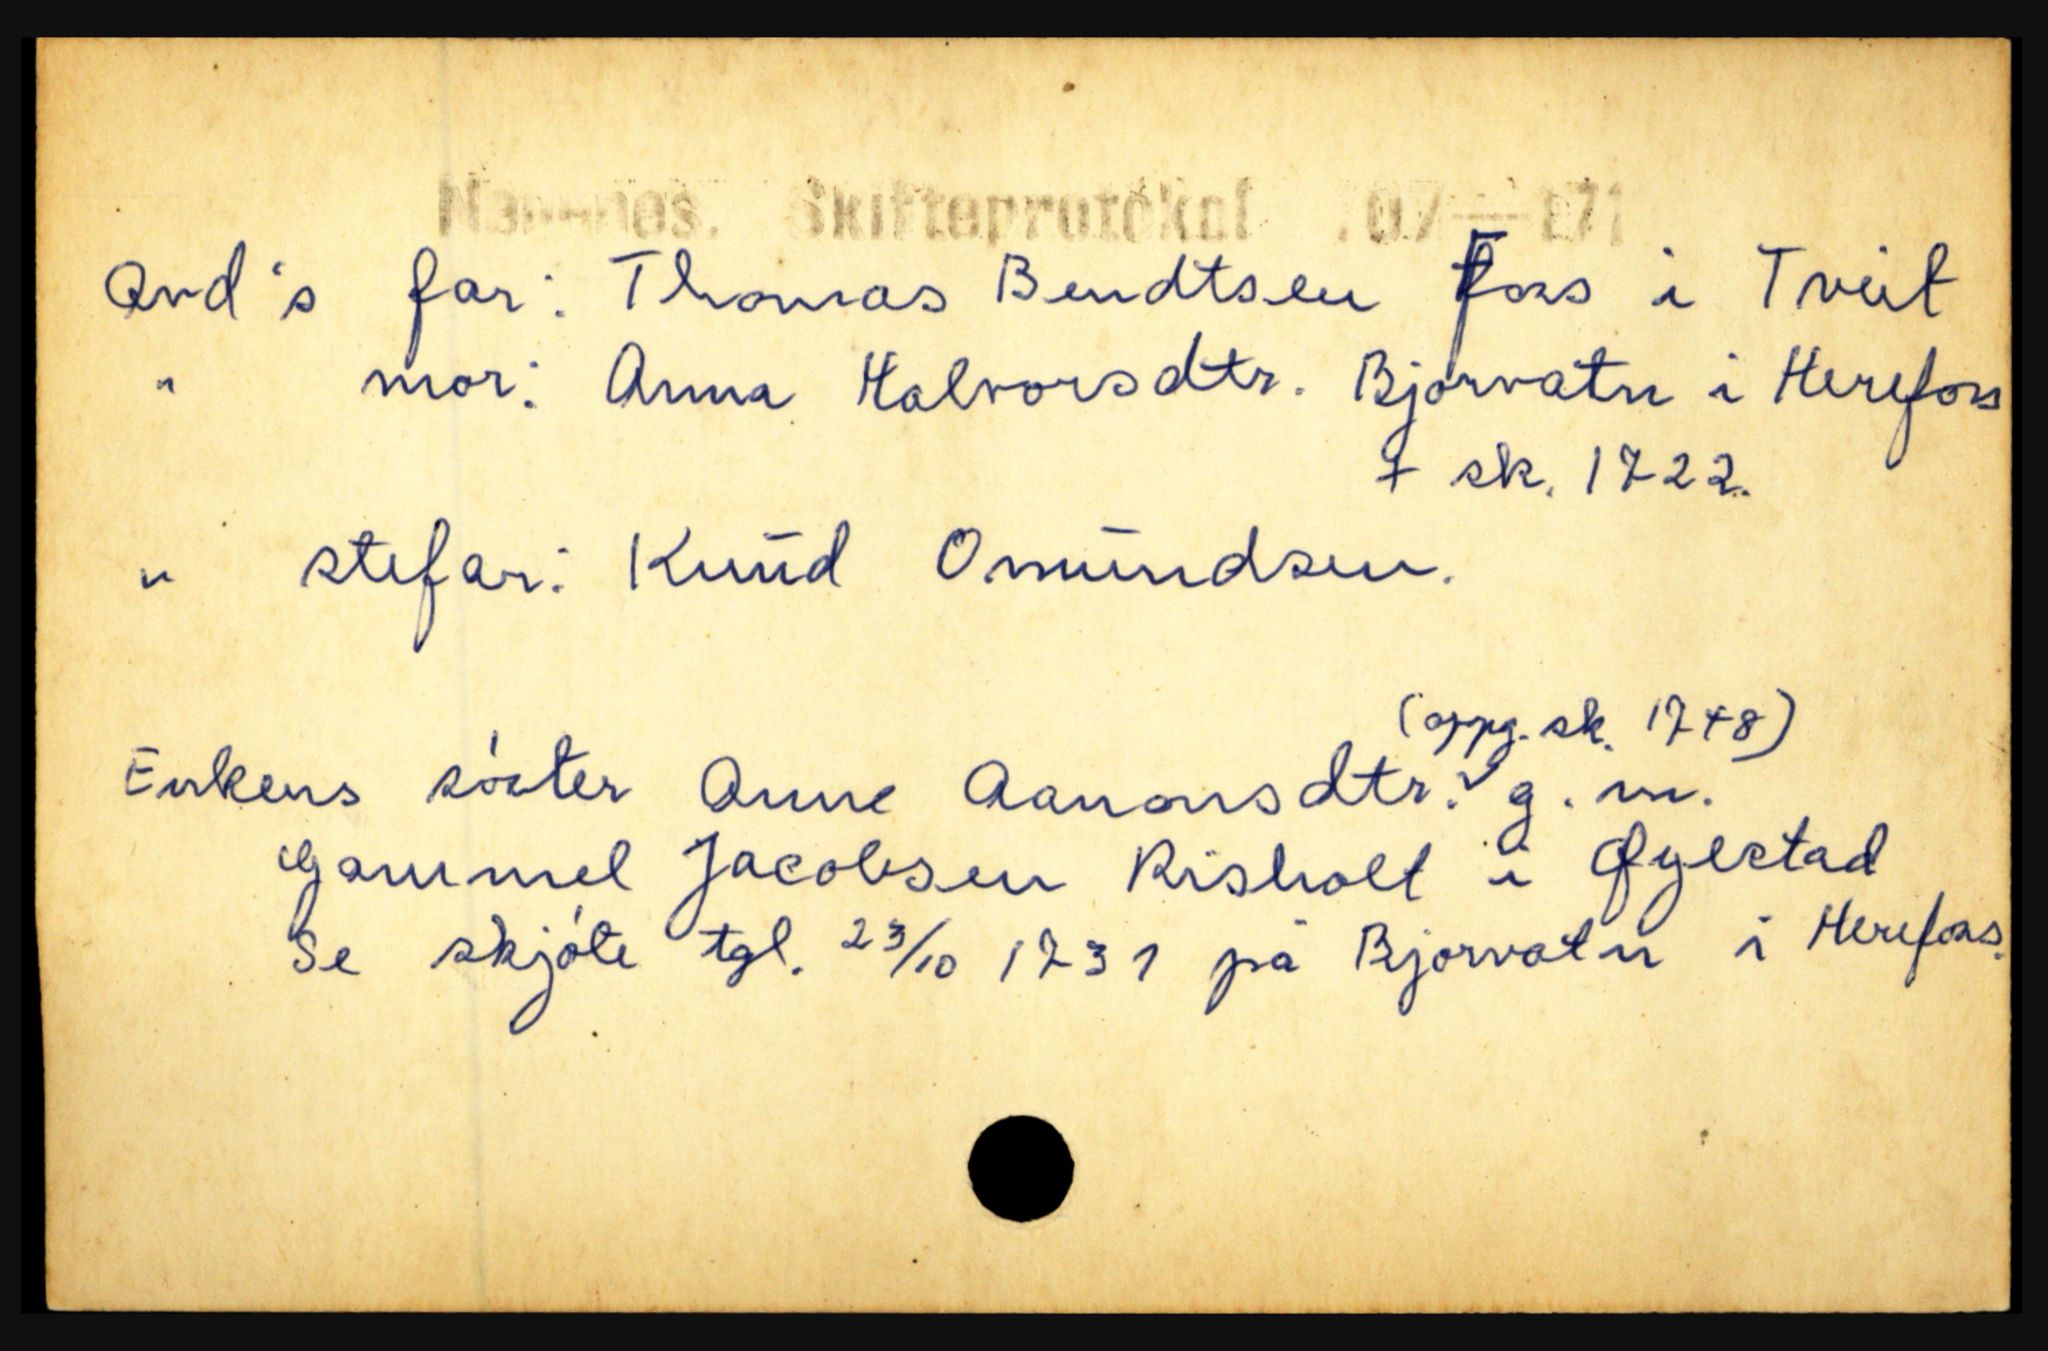 Skifteprotokol
Avd's far: Thomas Bendtsen Foss i Tveit
" mor: Anna Halvorsdtr. Bjorvatn i Herefoss
† sk. 1722.
" stefar: Knud Omundsen.
(oppg. sk. 1748)
Enkens söster Anne Aanonsdtr. g. m.
Gammel Jacobsen Risholt i Øyestad
Se skjöte tgl. 23/10 1731 på Bjorvatn i Herefoss.